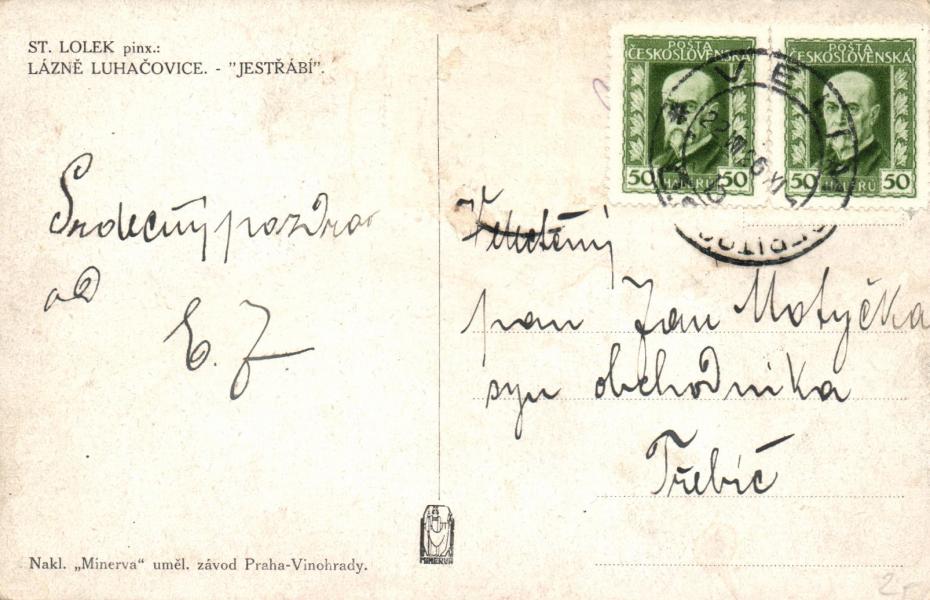 ST. LOLEK pinx.:
LÁZNĚ LUHAČOVICE. - "JESTŘÁBÍ".
POŠTA
ČESKOSLOVENSKÁ
50 HALÉŘŮ 50
POŠTA
ČESKOSLOVENSKÁ
50 HALÉŘŮ 50
Srdečný pozdrav
od
E. J.
pan Jan Motyčka
syn obchodníka
Třebíč
MINERVA
Nakl. „Minerva“ uměl. závod Praha-Vinohrady.